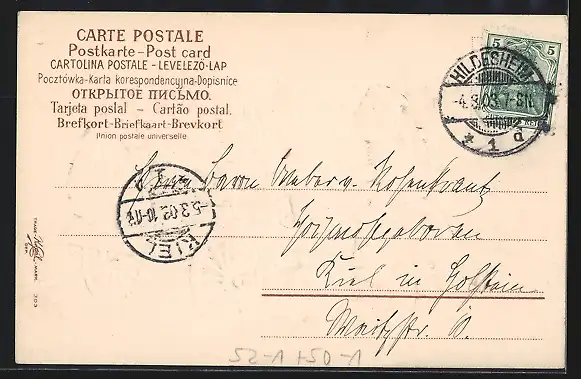 CARTE POSTALE
Postkarte-Post card
CARTOLINA POSTALE - LEVELEZÖ-LAP
Pocztówka-Karta korespondencyjna-Dopisnice
ОТКРЫТОЕ ПИСЬМО.
Tarjeta postal - Cartão postal.
Brefkort-Briefkaart-Brevkort
Union postale universelle
5 5
HILDESHEIM
7-8N.
* 1 d
KIEL
-5.3.03.10-11V
Baron Weber v. Rosenkrantz
Hochwohlgeboren
Kiel in Holstein
TRADE MARK
303